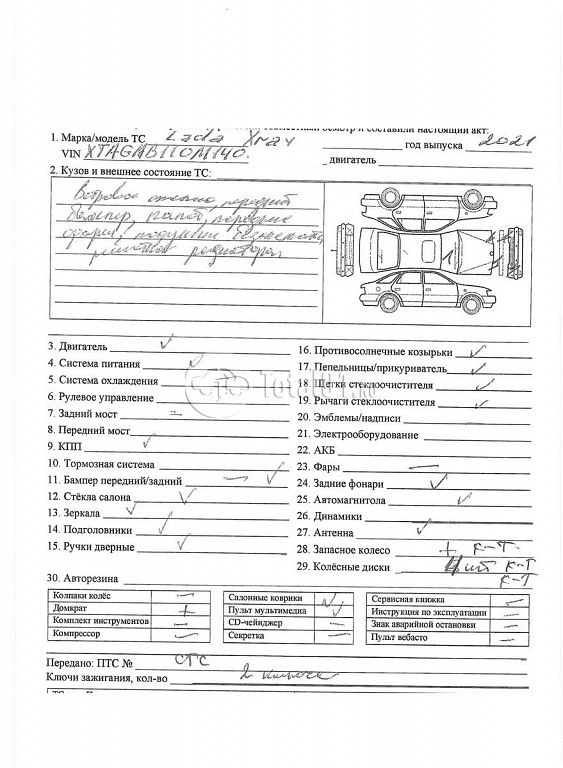 осмотр и составили настоящий акт:
1. Марка/модель ТС Lada Xray год выпуска 2021
VIN XTAGAB110M140. , двигатель
2. Кузов и внешнее состояние ТС:
Ветровое стекло, передний
бампер, капот, передние
фары, подушки безопасности
решетка радиатора
3. Двигатель ✓
4. Система питания ✓
5. Система охлаждения ✓
6. Рулевое управление
7. Задний мост –
8. Передний мост
9. КПП ✓
10. Тормозная система
11. Бампер передний/задний — ✓
12. Стёкла салона ✓
13. Зеркала ✓
14. Подголовники ✓
15. Ручки дверные ✓
16. Противосолнечные козырьки ✓
17. Пепельницы/прикуриватель ✓
18. Щетки стеклоочистителя ✓
19. Рычаги стеклоочистителя ✓
20. Эмблемы/надписи
21. Электрооборудование
22. АКБ
23. Фары —
24. Задние фонари ✓
25. Автомагнитола ✓
26. Динамики
27. Антенна ✓
28. Запасное колесо + к-т
29. Колёсные диски 4 шт к-т
к-т
30. Авторезина
Колпаки колёс —
Домкрат +
Комплект инструментов —
Компрессор —
Салонные коврики ✓
Пульт мультимедиа ✓
CD-чейнджер —
Секретка —
Сервисная книжка —
Инструкция по эксплуатации —
Знак аварийной остановки —
Пульт вебасто —
Передано: ПТС № СТС
Ключи зажигания, кол-во 2 ключа
Total01.ru